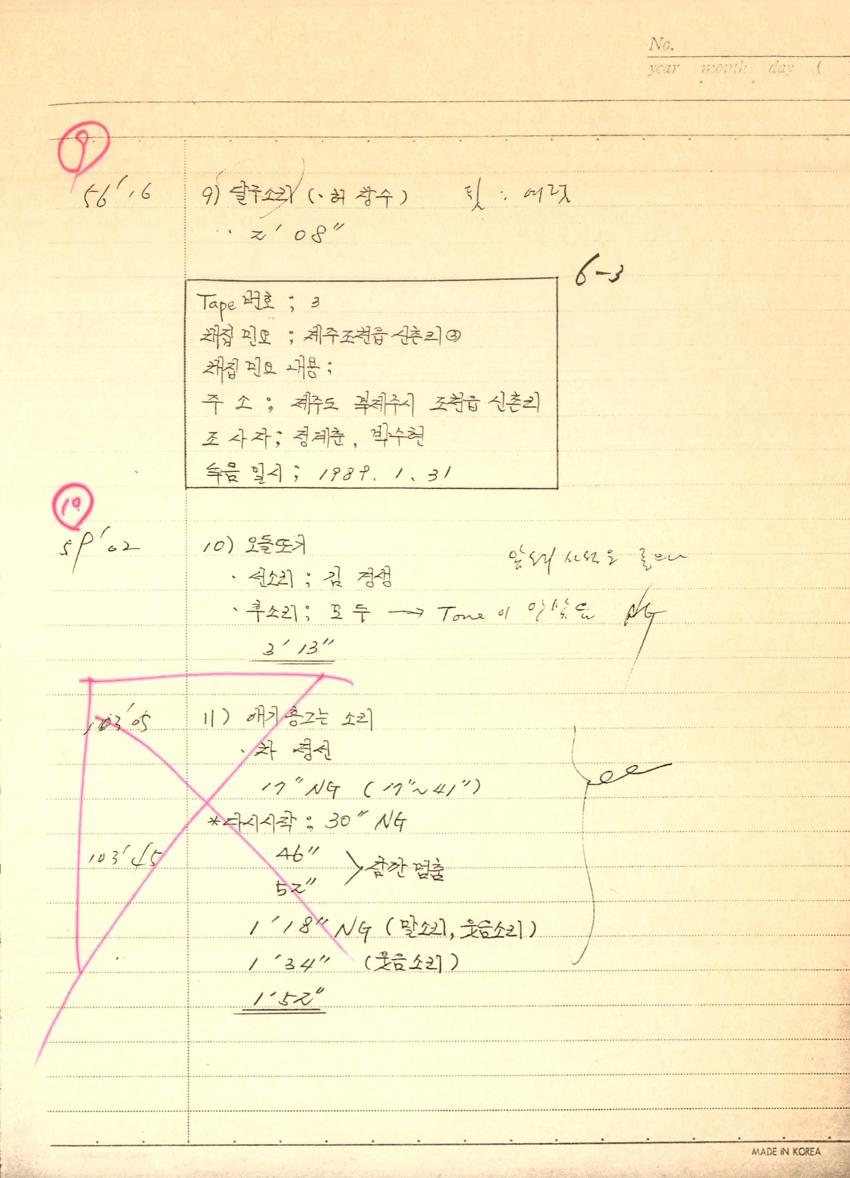 No.
year month day (
9
56' 16 9) 달구소리 (·허 창수)
2' 08"
6-3
Tape 번호 ; 3
채집 민요 ; 제주조천읍 신촌리 ③
채집 민요 내용 ;
주 소 ; 제주도 북제주시 조천읍 신촌리
조 사 자 ; 정례훈, 박수현
녹음 일시 ; 1989. 1. 31
10
59' 02 10) 오돌또기
· 선소리 ; 김 경생
· 후소리 ; 모 두 → Tone이 안맞음 NG
3' 13"
103' 05 11) 애기 흥그는 소리
· 차 영신
17" NG ( 17"~41")
*다시시작 ; 30" NG
103' 45 46"
52" 〉잠깐 멈춤
1' 18" NG (말소리, 웃음소리)
1' 34" (웃음소리)
1' 52"
MADE IN KOREA